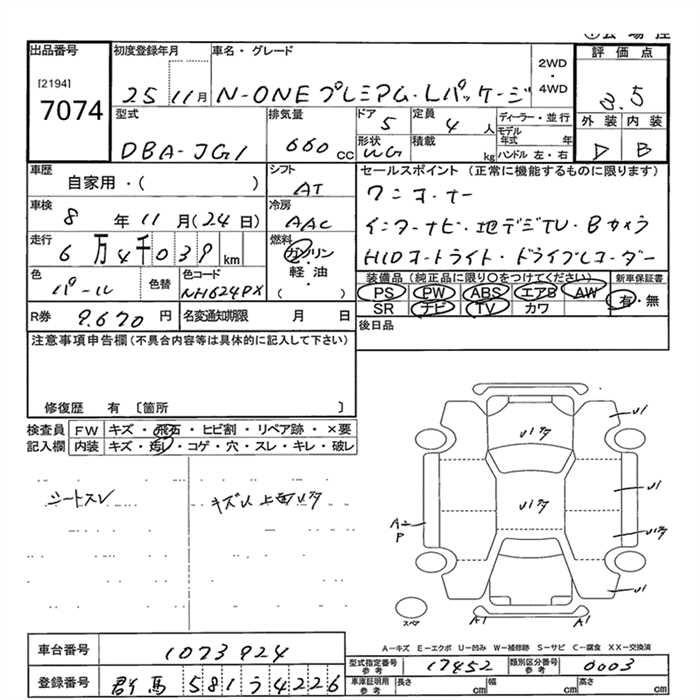 出品番号
[2194]
7074
初度登録年月
25 11月
車名・グレード
N-ONE プレミアム・Lパッケージ
2WD
・
4WD
評価点
3.5
外装 内装
D B
型式
DBA-JG1
排気量
660 CC
ドア
5
定員
4 人
形状
WG
積載
kg
ディーラー・並行
モデル年式 年
ハンドル 左・右
車歴
自家用・( )
シフト
AT
セールスポイント (正常に機能するものに限ります)
ワンオーナー
インターナビ・地デジTV・Bカメラ
HIDオートライト・ドライブレコーダー
車検
8 年 11 月(24 日)
冷房
AAC
走行
6万4千039 km
燃料
ガソリン
軽油
( ・ )
色
パール
色替
色コード
NH624PX
装備品 (純正品に限り○をつけてください)
PS PW ABS エアB AW
SR ナビ TV カワ
新車保証書
有・無
R券 9.670 円
名変通知期限 月 日
後日品
注意事項申告欄(不具合内容等は具体的に記入して下さい)
修復歴 有 〔箇所 〕
検査員
記入欄
FW キズ・飛石・ヒビ割・リペア跡・×要
内装 キズ・汚レ・コゲ・穴・スレ・キレ・破レ
シートスレ
A2
P
U1
U1
U1
A1
A1
スペア
A-キズ E-エクボ U-凹み W-補修跡 S-サビ C-腐食 XX-交換済
車台番号 1073924
型式指定番号
参考
17452
類別区分番号
参考
0003
登録番号 群馬 581う4226
車庫証明用
参考
長さ cm 幅 cm 高さ cm